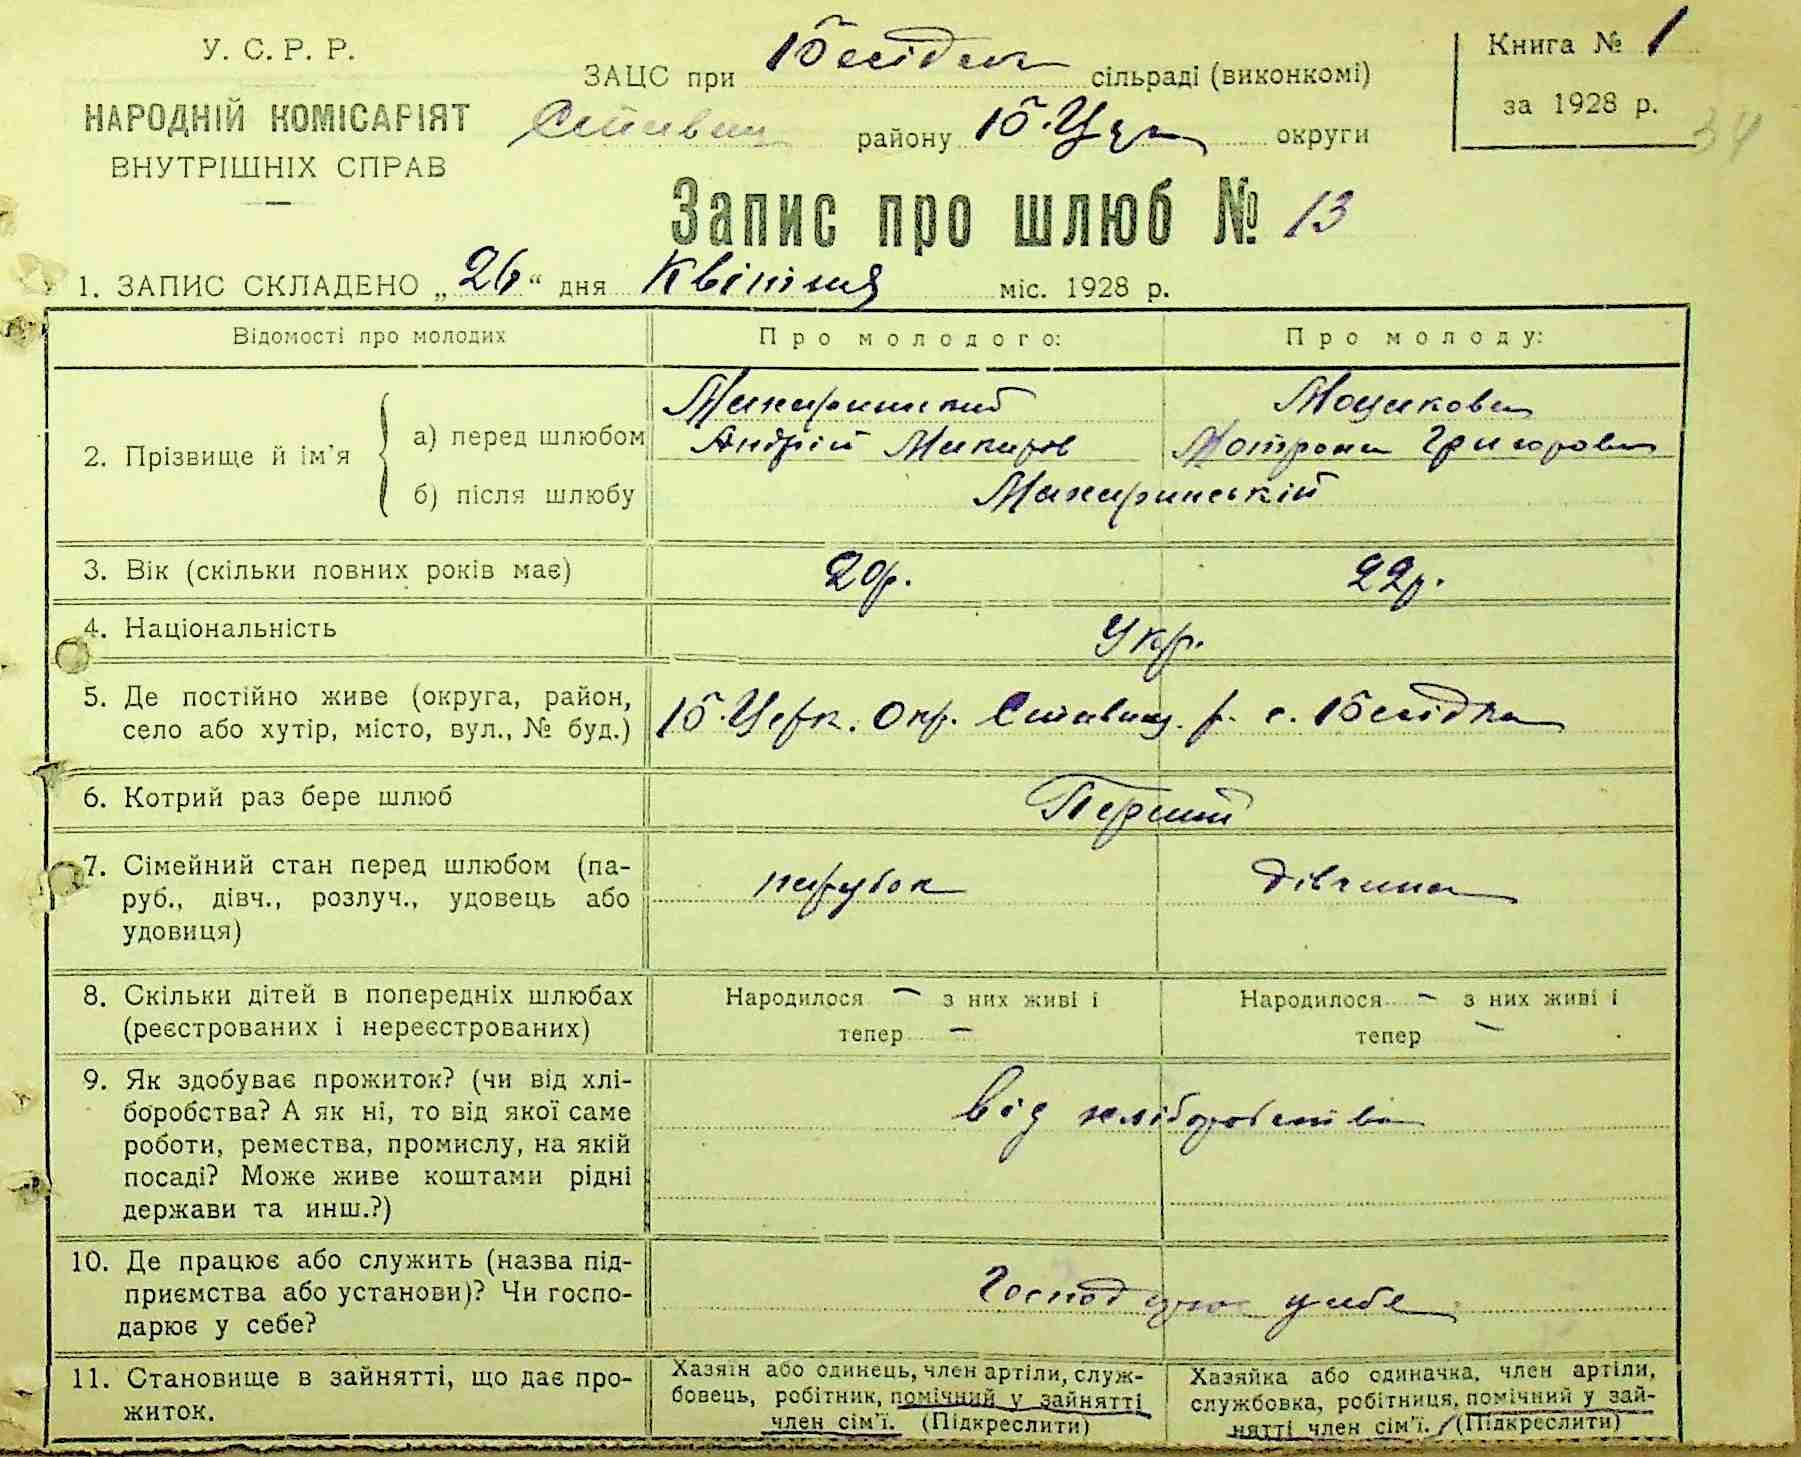 У. С. Р. Р.
НАРОДНІЙ КОМІСАРІЯТ
ВНУТРІШНІХ СПРАВ
ЗАЦС при Бесідка сільраді (виконкомі)
Ставищ району Б.Церк округи
Книга № 1
за 1928 р.
34
Запис про шлюб № 13
1. ЗАПИС СКЛАДЕНО „26“ дня Квітня міс. 1928 р.
Відомості про молодих Про молодого: Про молоду:
2. Прізвище й ім'я
а) перед шлюбом
Андрій Макаров
Мотрона Григорова
б) після шлюбу
3. Вік (скільки повних років має) 20р. 22р.
4. Національність Укр.
5. Де постійно живе (округа, район,
село або хутір, місто, вул., № буд.) Б.Церк. Окр. Ставищ. р. с. Бесідка
6. Котрий раз бере шлюб Перший
7. Сімейний стан перед шлюбом (па-
руб., дівч., розлуч., удовець або
удовиця)
парубок дівчина
8. Скільки дітей в попередніх шлюбах
(реєстрованих і нереєстрованих)
Народилося – з них живі і
тепер –
Народилося – з них живі і
тепер –
9. Як здобуває прожиток? (чи від хлі-
боробства? А як ні, то від якої саме
роботи, ремества, промислу, на якій
посаді? Може живе коштами рідні
держави та инш.?)
від хліборобства
10. Де працює або служить (назва під-
приємства або установи)? Чи госпо-
дарює у себе?
11. Становище в зайнятті, що дає про-
житок.
Хазяїн або одинець, член артіли, служ-
бовець, робітник, помічний у зайнятті
член сім'ї. (Підкреслити)
Хазяйка або одиначка, член артіли,
службовка, робітниця, помічний у зай-
нятті член сім'ї. (Підкреслити)